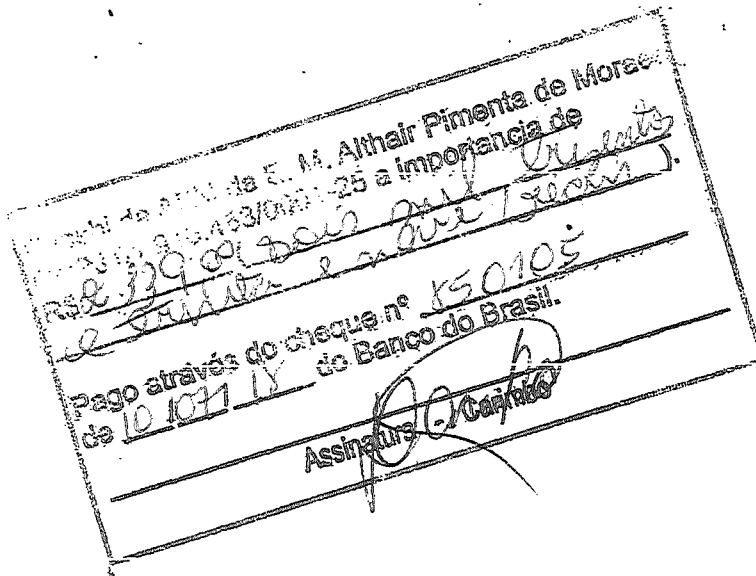 da E. M. Althair Pimenta de Moraes
25 a importancia de
R$ 2.339,00 ( dois mil trezentos
e trinta e nove reais ).
Pago através do cheque nº 850105
de 10 107 1 18 do Banco do Brasil.
Assinatura - Carimbo